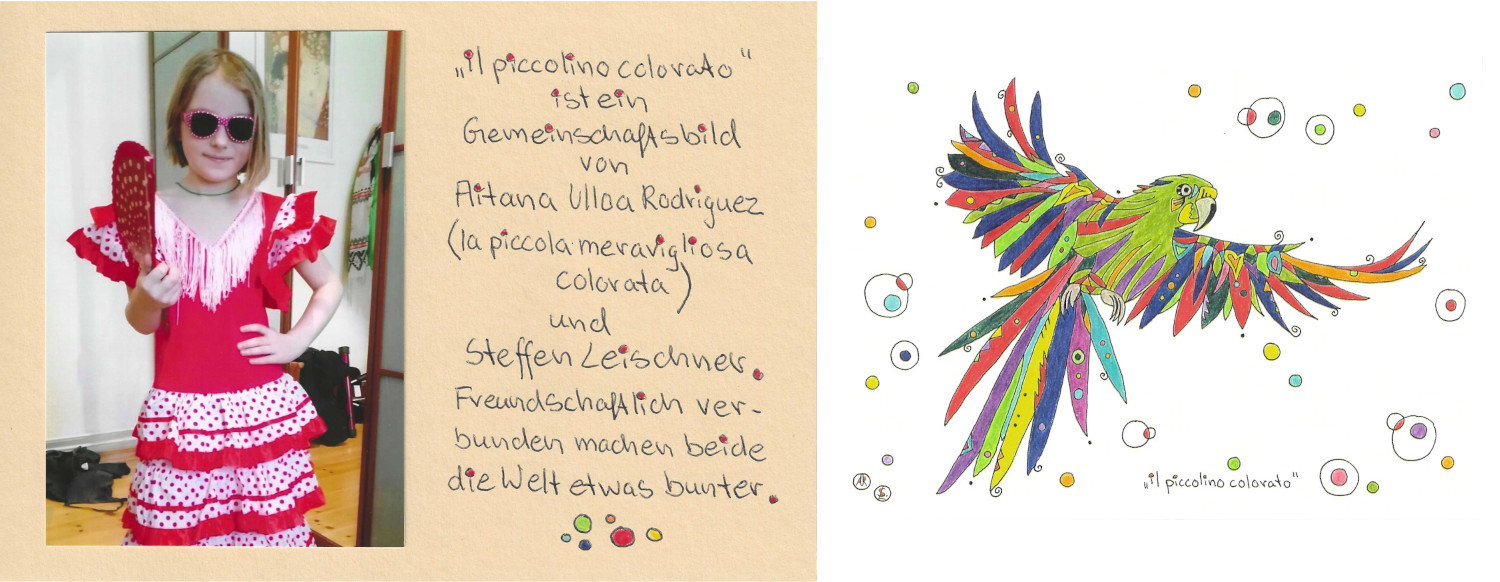 „il piccolino colorato“
ist ein
Gemeinschaftsbild
von
Aitana Ulloa Rodriguez
(la piccola meravigliosa
colorata)
und
Steffen Leischner.
Freundschaftlich ver-
bunden machen beide
die Welt etwas bunter.
„il piccolino colorato“
AR
SL